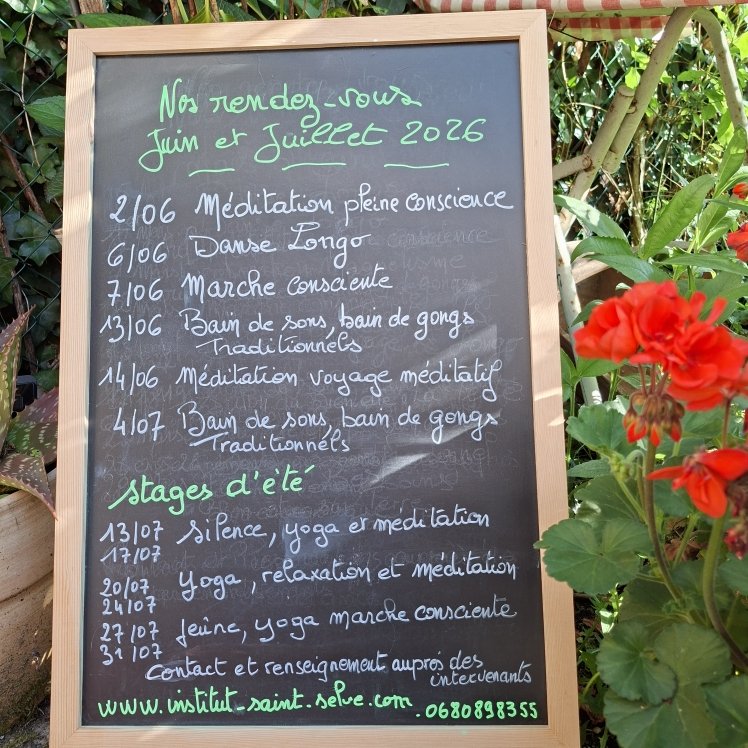 Nos rendez-vous
Juin et Juillet 2026
2/06 Méditation pleine conscience
6/06 Danse Longo
7/06 Marche consciente
13/06 Bain de sons, bain de gongs
Traditionnels
14/06 Méditation voyage méditatif
4/07 Bain de sons, bain de gongs
Traditionnels
stages d'été
13/07 silence, yoga et méditation
17/07
20/07 yoga, relaxation et méditation
24/07
27/07 jeûne, yoga marche consciente
31/07
Contact et renseignement auprès des
intervenants
www.institut-saint-selve.com. 0680898355